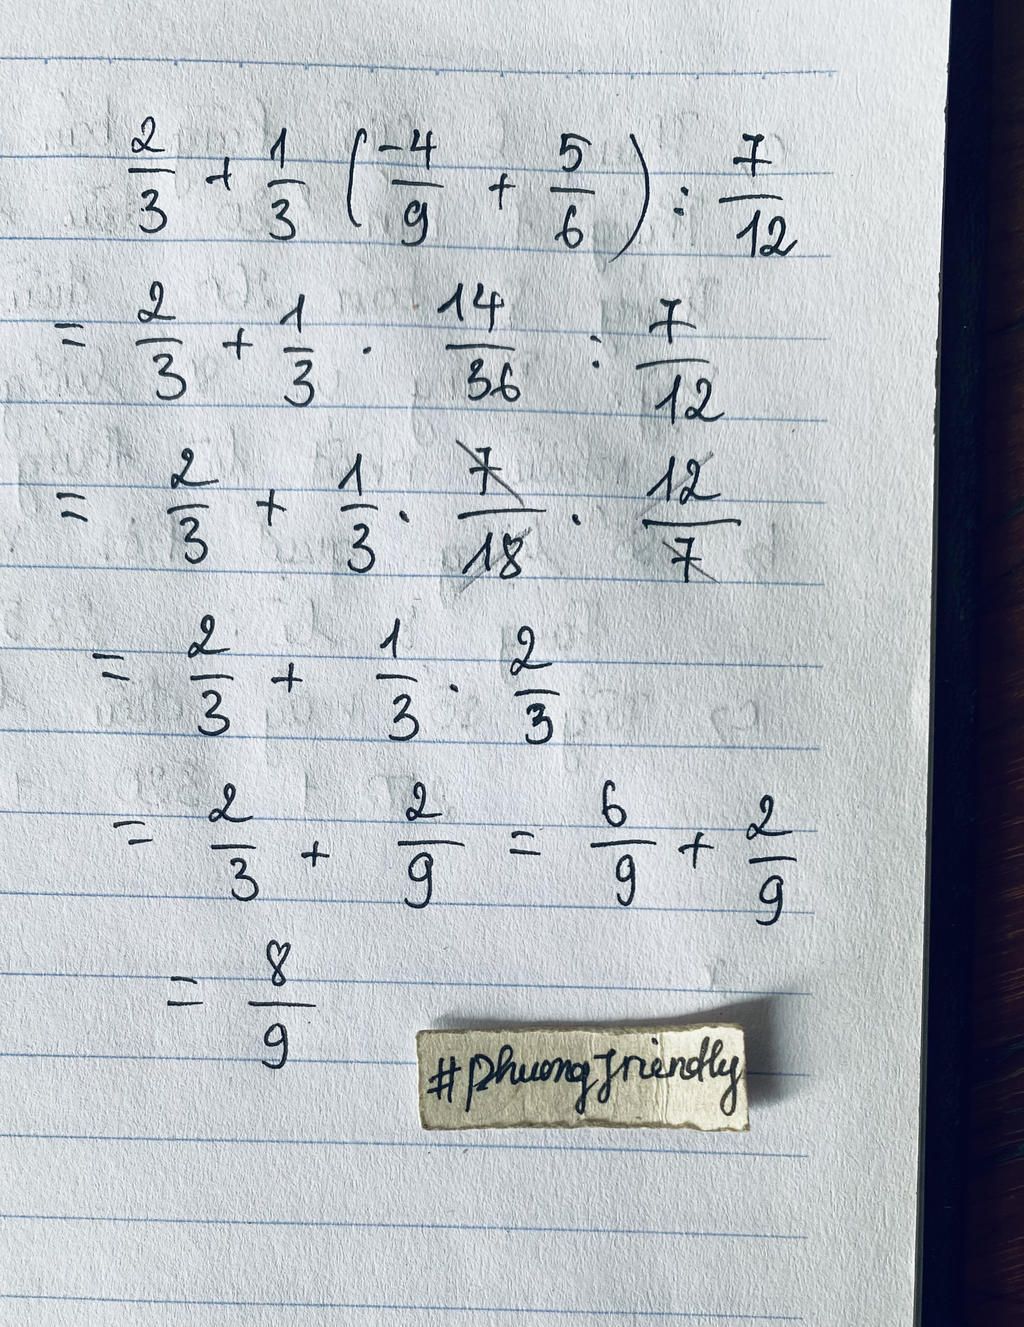 2/3 + 1/3 (-4/9 + 5/6) : 7/12
= 2/3 + 1/3 . 14/36 : 7/12
= 2/3 + 1/3 . 7/18 . 12/7
= 2/3 + 1/3 . 2/3
= 2/3 + 2/9 = 6/9 + 2/9
= 8/9
#phuongfriendly